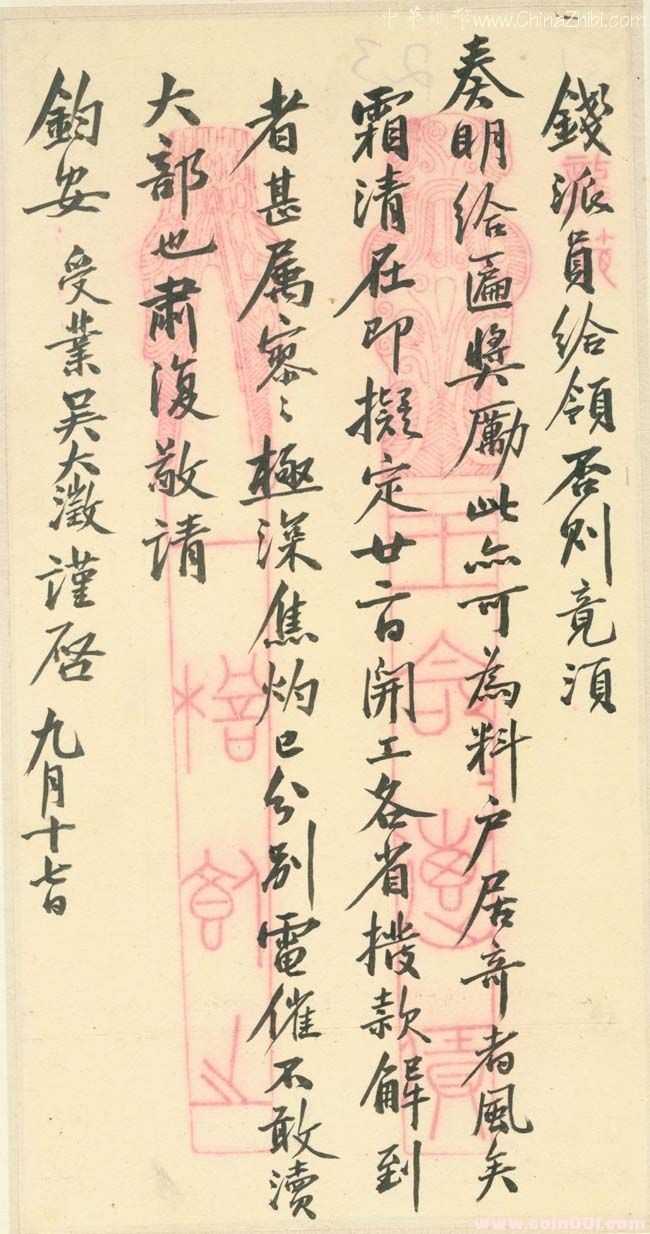 中華紙幣 www.ChinaZhibi.com
錢派員給領否則竟須
奏明給匾獎勵此亦可為料戶居奇者風矣
霜清在即擬定廿二日開工各省撥款解到
者甚属寥〻極深焦灼已分別電催不敢瀆
大部也肅復敬請
鈞安 受業吳大澂謹啓 九月十七日
www.coin001.com